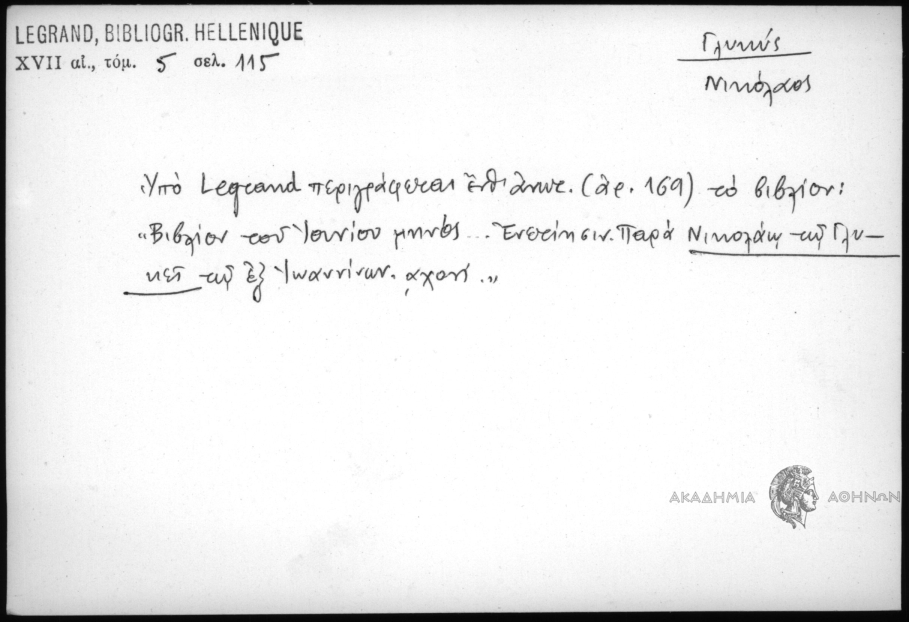 LEGRAND, BIBLIOGR. HELLENIQUE
XVII αἰ., τόμ. 5 σελ. 115
Γλυκύς
Νικόλαος
Ὑπὸ Legrand περιγράφεται ἔνθ' ἀνωτ. (ἀρ. 169) τὸ βιβλίον:
"Βιβλίον τοῦ Ἰουνίου μηνός... Ἐνετίησιν. Παρὰ Νικολάῳ τῷ Γλυ-
κεῖ τῷ ἐξ Ἰωαννίνων.
ΑΚΑΔΗΜΙΑ ΑΘΗΝΩΝ